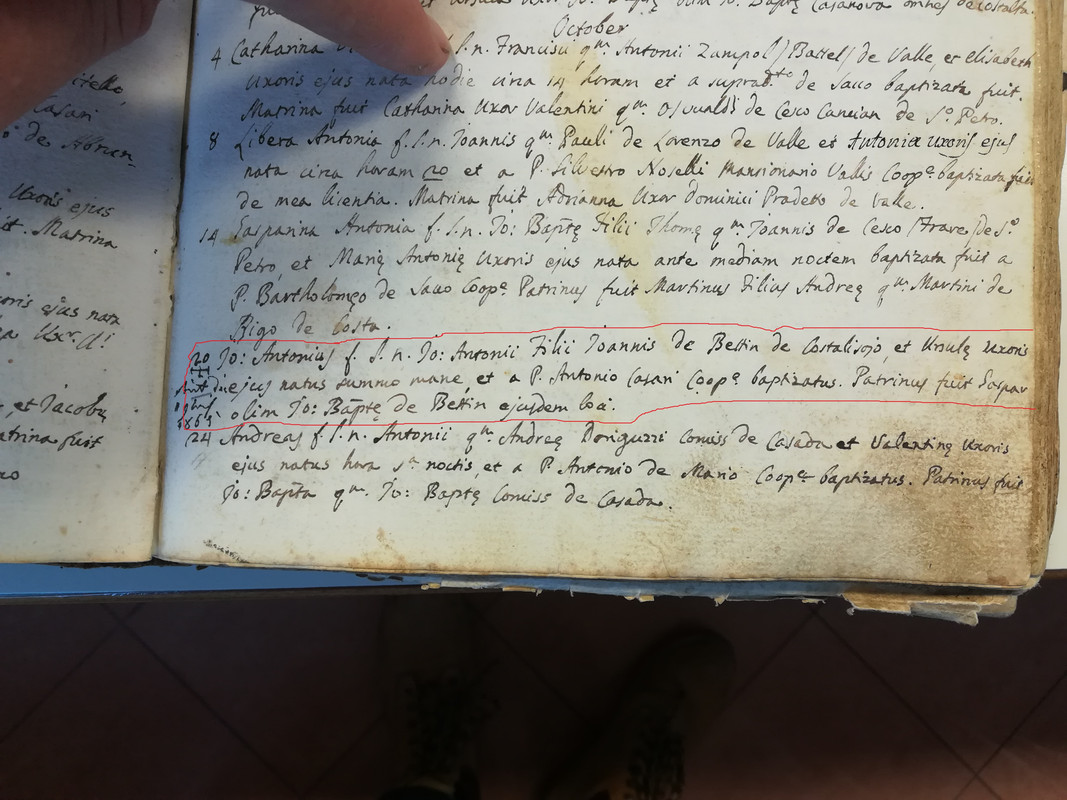 itello,
Casari
de
Uxoris ejus
it. Matrina
oris ejus nata
Uxr.
et Jacobus
atrina fuit
Uxor Jo: Baptę Casanova omnes de Costalta.
October
4 Catharina f. l. n. Francisci qm Antonii Zampol / Battel / de Valle, et Elisabeth
Uxoris ejus nata hodie circa 14 horam et a supradto de Sacco baptizata fuit.
Matrina fuit Catharina Uxor Valentini qm Osvualdi de Cesco Cancian de So Petro.
8 Libera Antonia f. l. n. Joannis qm Pauli de Lorenzo de Valle et Antonia uxoris ejus
nata circa horam 20 et a P. Silvestro Noselli Mansionario Vallis Coope baptizata fuit
de mea licentia. Matrina fuit Adrianna Uxor Dominici Pradetto de Valle.
14 Gasparina Antonia f. l. n. Jo: Baptę Filii Thomę qm Joannis de Cesco / Frare / de So
Petro, et Marię Antonię Uxoris ejus nata ante mediam noctem baptizata fuit a
P. Bartholomęo de Sacco Coope Patrinus fuit Martinus Filius Andreę qm Martini de
Bigo de Costa.
20 Jo: Antonius f. l. n. Jo: Antonii Filii Joannis de Bettin de Costalisojo, et Ursulę Uxoris
ejus natus summo mane, et a P. Antonio Casari Coope baptizatus. Patrinus fuit Gaspar
olim Jo: Baptę de Bettin ejusdem loci.
24 Andreas f. l. n. Antonii qm Andreę Doriguzzi Comiss de Casada et Valentinę Uxoris
ejus natus hora 5ta noctis, et a P. Antonio de Mario Coope baptizatus. Patrinus fuit
Jo: Bapta qm. Jo: Baptę Comiss de Casada.